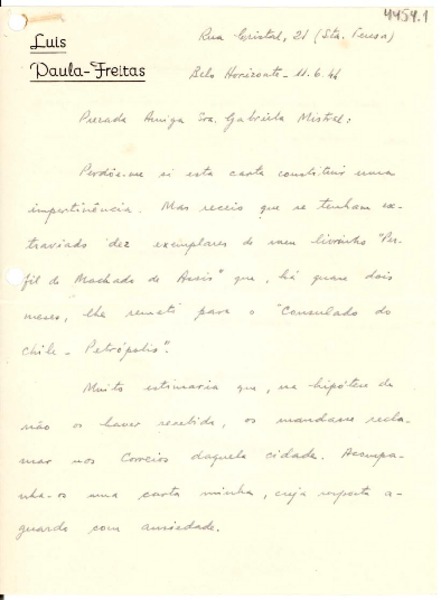 4454.1
Luis
Paula-Freitas
Rua Cristal, 21 (Sta. Teresa)
Belo Horizonte - 11.6.44
Prezada Amiga Sra. Gabriela Mistral:
Perdôe-me si esta carta constituir uma
impertinência. Mas receio que se tenham ex-
traviado dez exemplares de meu livrinho "Per-
fil de Machado de Assis" que, há quase dois
meses, lhe remeti para o "Consulado do
Chile - Petrópolis".
Muito estimaria que, na hipótese de
não os haver recebido, os mandasse recla-
mar nos Correios daquela cidade. Acompa-
nha-os uma carta minha, cuja resposta a-
guardo com ansiedade.